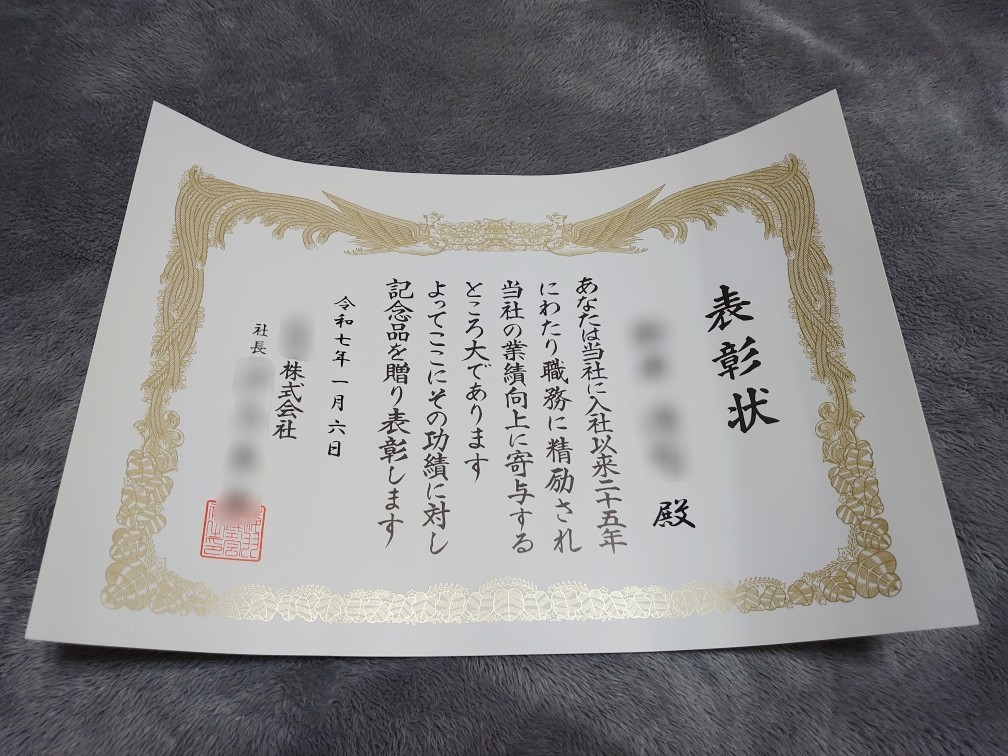 表彰状
殿
あなたは当社に入社以来二十五年
にわたり職務に精励され
当社の業績向上に寄与する
ところ大であります
よってここにその功績に対し
記念品を贈り表彰します
令和七年一月六日
株式会社
社長